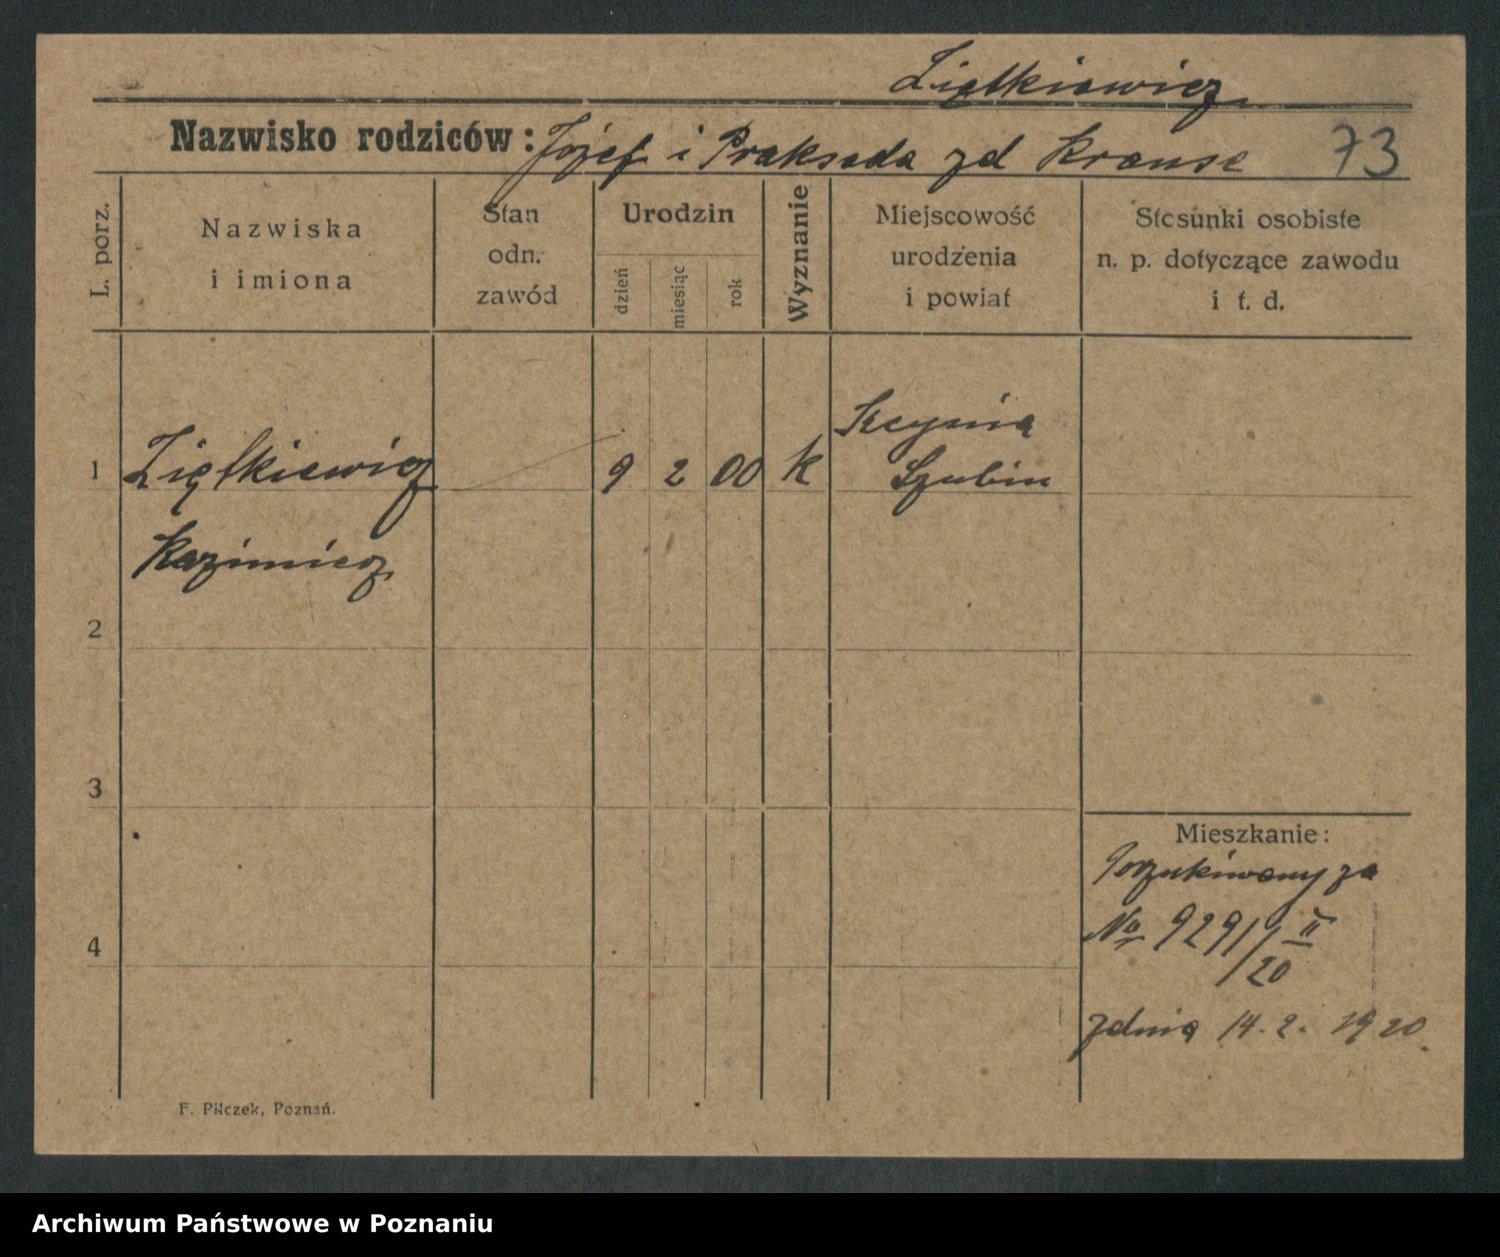 Ziętkiewicz
Nazwisko rodziców: Józef i Prakseda zd Krause 73
L. porz.
Nazwiska
i imiona
Stan
odn.
zawód
Urodzin
dzień
miesiąc
rok
Wyznanie
Miejscowość
urodzenia
i powiat
Stosunki osobiste
n. p. dotyczące zawodu
i t. d.
1 Ziętkiewicz 9 2 00 k Kcynia
Szubin
Kazimierz
2
3
4
Mieszkanie:
Poszukiwany za
No 9291/II
/20
zdnia 14. 2. 1920.
F. Pilczek, Poznań.
Archiwum Państwowe w Poznaniu